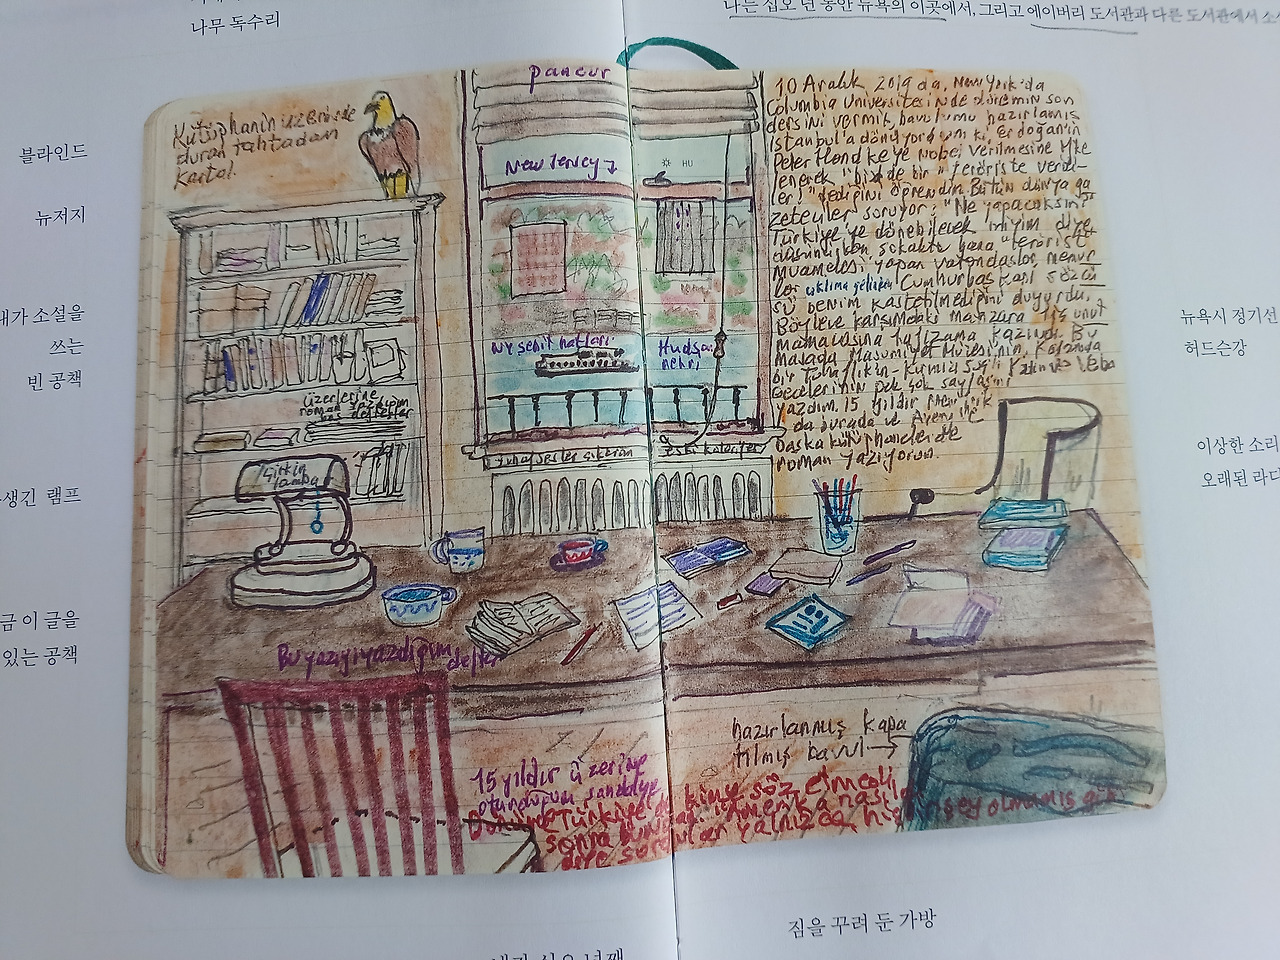 나무 독수리
나는 십오 년 동안 뉴욕의 이곳에서, 그리고 에이버리 도서관과 다른 도서관에서
블라인드
뉴저지
내가 소설을
쓰는
빈 공책
생긴 램프
금 이 글을
있는 공책
뉴욕시 정기선
허드슨강
이상한 소리
오래된 라디
짐을 꾸려 둔 가방
Kütüphanin üzerinde
duran tahtadan
kartal.
pancur
New Jersey
HU
NY şehir hatları
Hudson
nehri
üzerlerine
roman yazdığım
boş defterler
Çirkin
lamba
tuhaf sesler çıkaran
eski kalorifer
10 Aralık 2019 da, New York'da
Columbia Üniversitesinde dönemin son
dersini vermiş, bavulumu hazırlamış
İstanbul'a dönüyordum ki, Erdoğan'ın
Peter Handke'ye Nobel verilmesine öfke
lenerek "bizde de bir teröriste verdi-
ler" dediğini öğrendim. Bütün dünya ga
zeteciler soruyor: "Ne yapacaksın?"
Türkiye'ye dönebilecek miyim diye
düşünürken, sokakta bana "terörist"
muamelesi yapan vatandaşlar, memur
lar aklıma gelirken Cumhurbaşkanı sözcü
sü benim kastedilmediğimi duyurdu.
Böylece karşımdaki manzara hiç unut
mamacasına hafızama kazındı. Bu
masada Masumiyet Müzesinin, Kafamda
Bir Tuhaflık'ın, Kırmızı Saçlı Kadın ve Veba
Gecelerinin pek çok sayfasını
yazdım. 15 yıldır New York
da burada ve Avery ile
başka kütüphanelerde
roman yazıyorum.
Bu yazıyı yazdığım defter
15 yıldır üzerine
oturduğum sandalye
hazırlanmış kapa
tılmış bavul
kimse söz etmedi
Türkiye'de
sonra
hiç bir şey olmamış gibi
diye sordular yalnızca